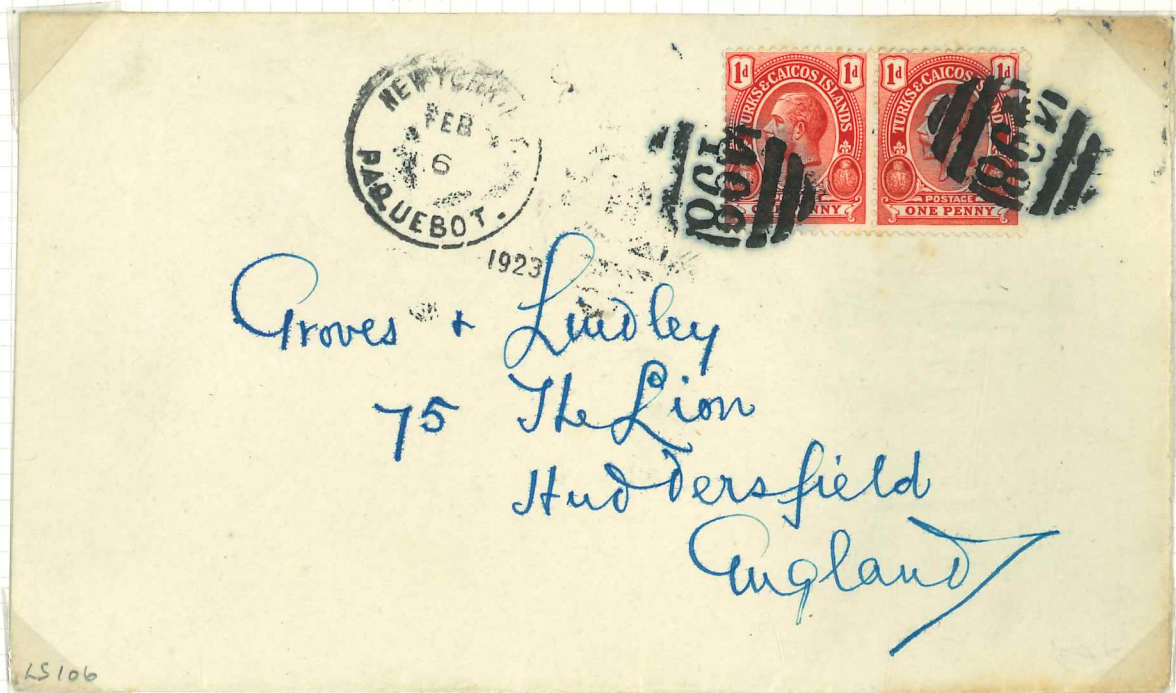 NEW YORK
FEB
6
PAQUEBOT.
1923
1d 1d
TURKS & CAICOS ISLANDS
PENNY
1d 1d
TURKS & CAICOS ISLANDS
POSTAGE
ONE PENNY
Groves + Lindley
75 The Lion
Huddersfield
England
LS106